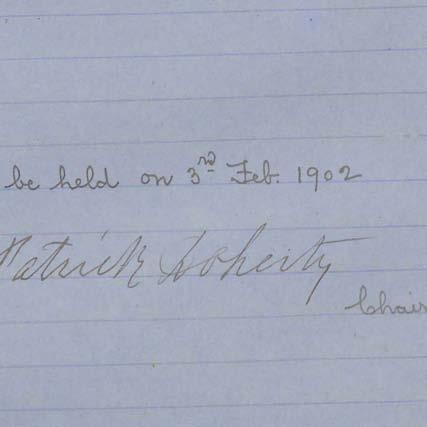 be held on 3rd Feb. 1902
Patrick Doherty
Chair